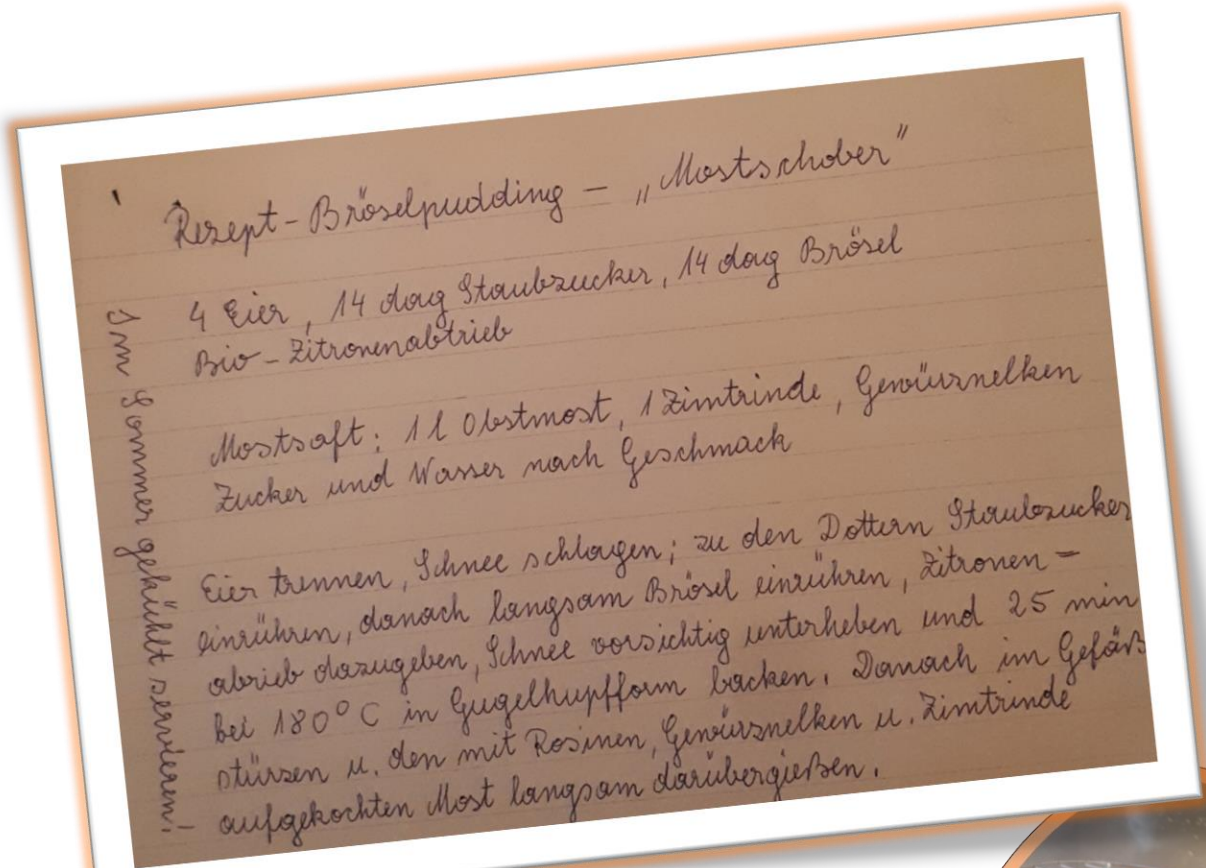 Rezept - Bröselpudding – „Mostschober"
4 Eier, 14 dag Staubzucker, 14 dag Brösel
Bio - Zitronenabtrieb
Mostsaft: 1 l Obstmost, 1 Zimtrinde, Gewürznelken
Zucker und Wasser nach Geschmack
Eier trennen, Schnee schlagen; zu den Dottern Staubzucker
einrühren, danach langsam Brösel einrühren, Zitronen =
abrieb dazugeben, Schnee vorsichtig unterheben und 25 min
bei 180° C in Gugelhupfform backen. Danach im Gefäß
stürzen u. den mit Rosinen, Gewürznelken u. Zimtrinde
aufgekochten Most langsam darübergießen.
Im Sommer gekühlt servieren!